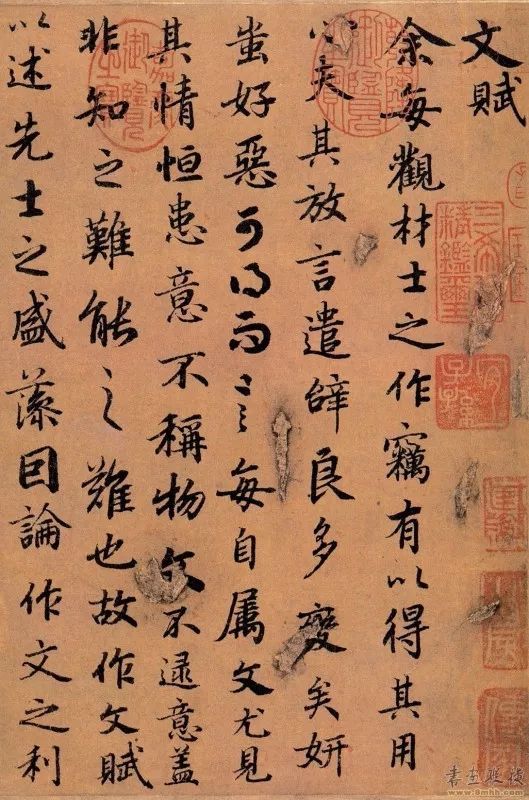 文賦
余每觀材士之作竊有以得其用
心夫其放言遣辭良多變矣妍
蚩好惡可得而言每自屬文尤見
其情恒患意不稱物文不逮意盖
非知之難能之難也故作文賦
以述先士之盛藻因論作文之利
三希堂精鑑璽
宜子孫